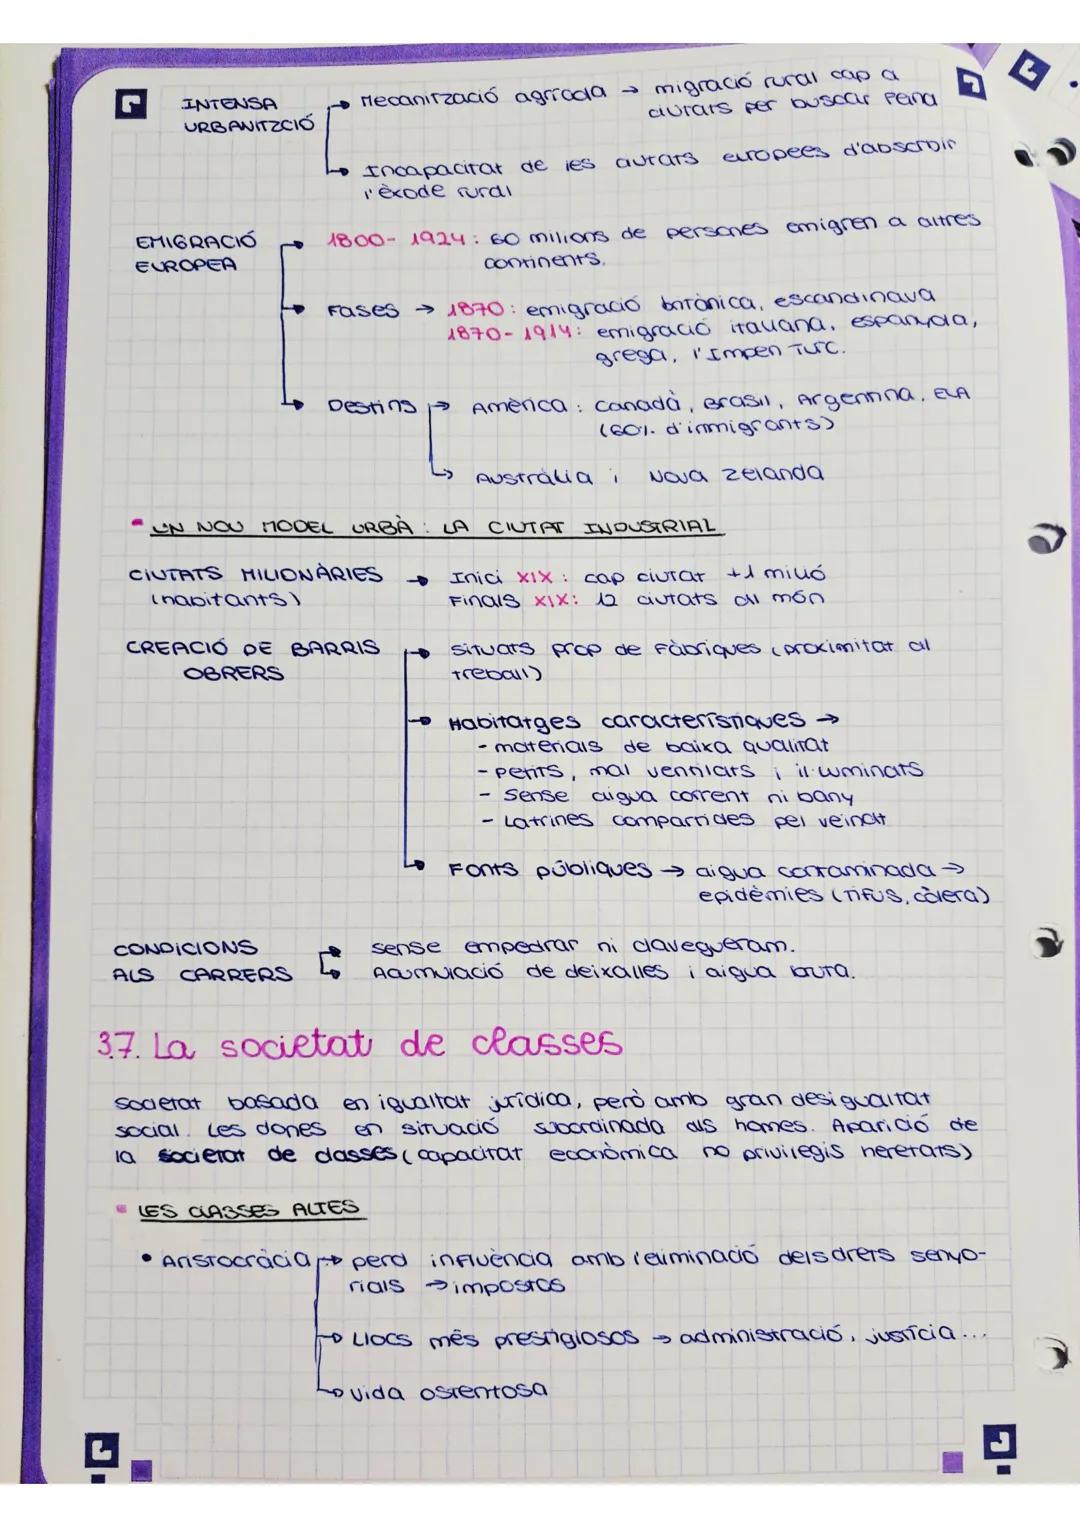 INTENSA
URBANITZCIÓ
→ Mecanització agrícola → migració rural cap a
ciutats per buscar feina
→ Incapacitat de les ciutats europees d'abscroir
l'èxode rural
EMIGRACIÓ
EUROPEA
→ 1800-1924: 60 milions de persones emigren a altres
continents.
→ Fases → 1870: emigració britànica, escandinava
1870-1914: emigració italiana, espanyola,
grega, l'Imperi Turc.
→ Destins → Amèrica: Canadà, Brasil, Argentina, EUA
(60% d'inmigrants)
→ Austràlia i Nova Zelanda
UN NOU MODEL URBÀ: LA CIUTAT INDUSTRIAL
CIUTATS MILIONÀRIES → Inici XIX: cap ciutat +1 milió
(habitants) Finals XIX: 12 ciutats al món
CREACIÓ DE BARRIS → situats prop de Fàbriques (proximitat al
OBRERS treball)
→ Habitatges característiques →
- materials de baixa qualitat
- petits, mal ventilats i il·luminats
- Sense aigua corrent ni bany
- Latrines compartides pel veïnat
→ Fonts públiques → aigua contaminada →
epidèmies (tifus, còlera)
CONDICIONS → sense empedrar ni clavegueram.
ALS CARRERS → Acumulació de deixalles i aigua bruta.
3.7. La societat de classes
Societat basada en igualtat jurídica, però amb gran desigualtat
social. Les dones en situació subordinada als homes. Aparició de
la societat de classes (capacitat econòmica no privilegis heretats)
LES CLASSES ALTES
• Aristocràcia → perd influència amb l'eliminació dels drets senyo-
rials → impostos
→ Llocs més prestigiosos → administració, justícia...
→ Vida ostentosa